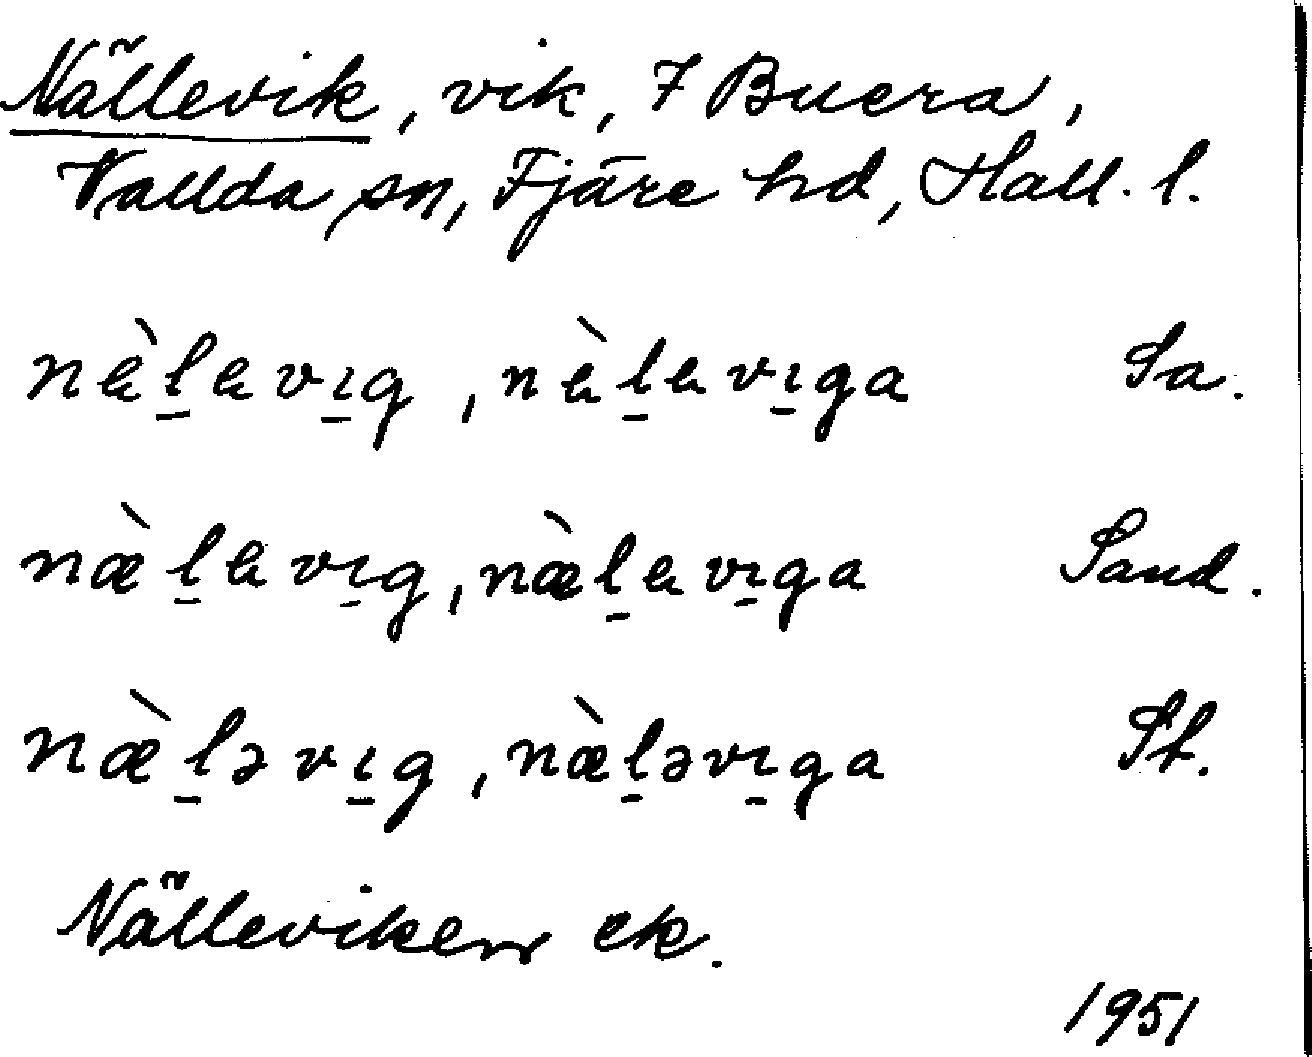 Nällevik, vik, 7 Buera,
Vallda sn, Fjäre hd, Hall. l.
nàl̠avı̠g, nàl̠avı̠ga Sa.
næ̀l̠avı̠g, næ̀l̠avı̠ga Sand.
næ̀l̠əvı̠g, næ̀l̠əvı̠ga St.
Nälleviken ek.
1951